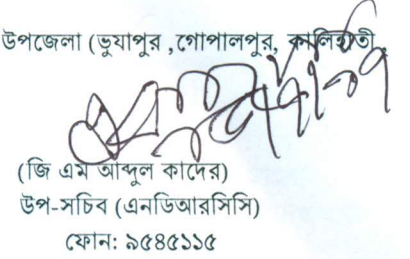 উপজেলা (ভুয়াপুর ,গোপালপুর, কালিহাতী,
(জি এম আব্দুল কাদের)
উপ-সচিব (এনডিআরসিসি)
ফোন: ৯৫৪৫১১৫